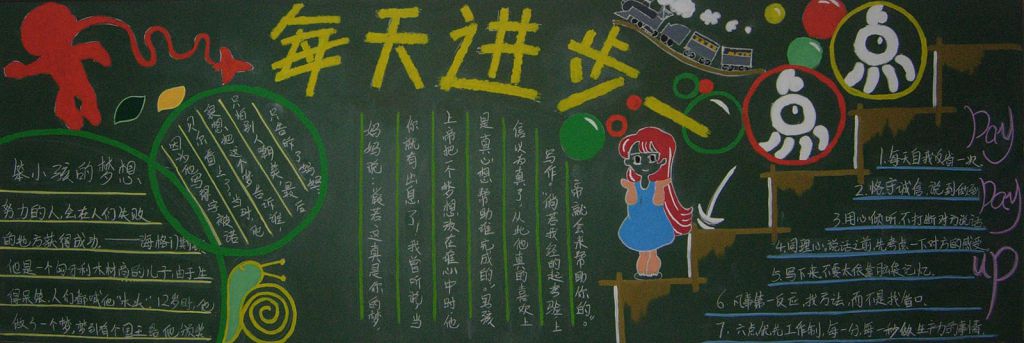 每天进步
笨小孩的梦想
努力的人,会在人们失败
的地方获得成功。——海格门斯
他是一个匈牙利木材商的儿子,由于生
得呆笨,人们都喊他“木头”,12岁时,他
做了一个梦,梦到有个国王给他颁奖
因为他写得字被诺
贝尔看上了,当时,他
很想把这个梦告诉谁,
只怕别人嘲笑,最后
只告诉了妈妈
妈妈说:“假若这真是你的梦,
你就有出息了!我曾听说,当
上帝把一个梦想放在谁心中时,他
是真心想帮助谁完成的。”男孩
信以为真了,从此他真的喜欢上
写作,“倘若我经的起考验,上
帝就会来帮助你的。
1.每天自我反省一次
2.恪守诚信,说到做到
3.用心倾听,不打断对方说话
4.同理心,说话之前先考虑一下对方的感受
5.写下来,不要太依靠脑袋记忆.
6.凡事第一反应:找方法,而不是找借口.
7.六点优先工作制,每一分,每一秒做生产力的事情
Day
Day
up